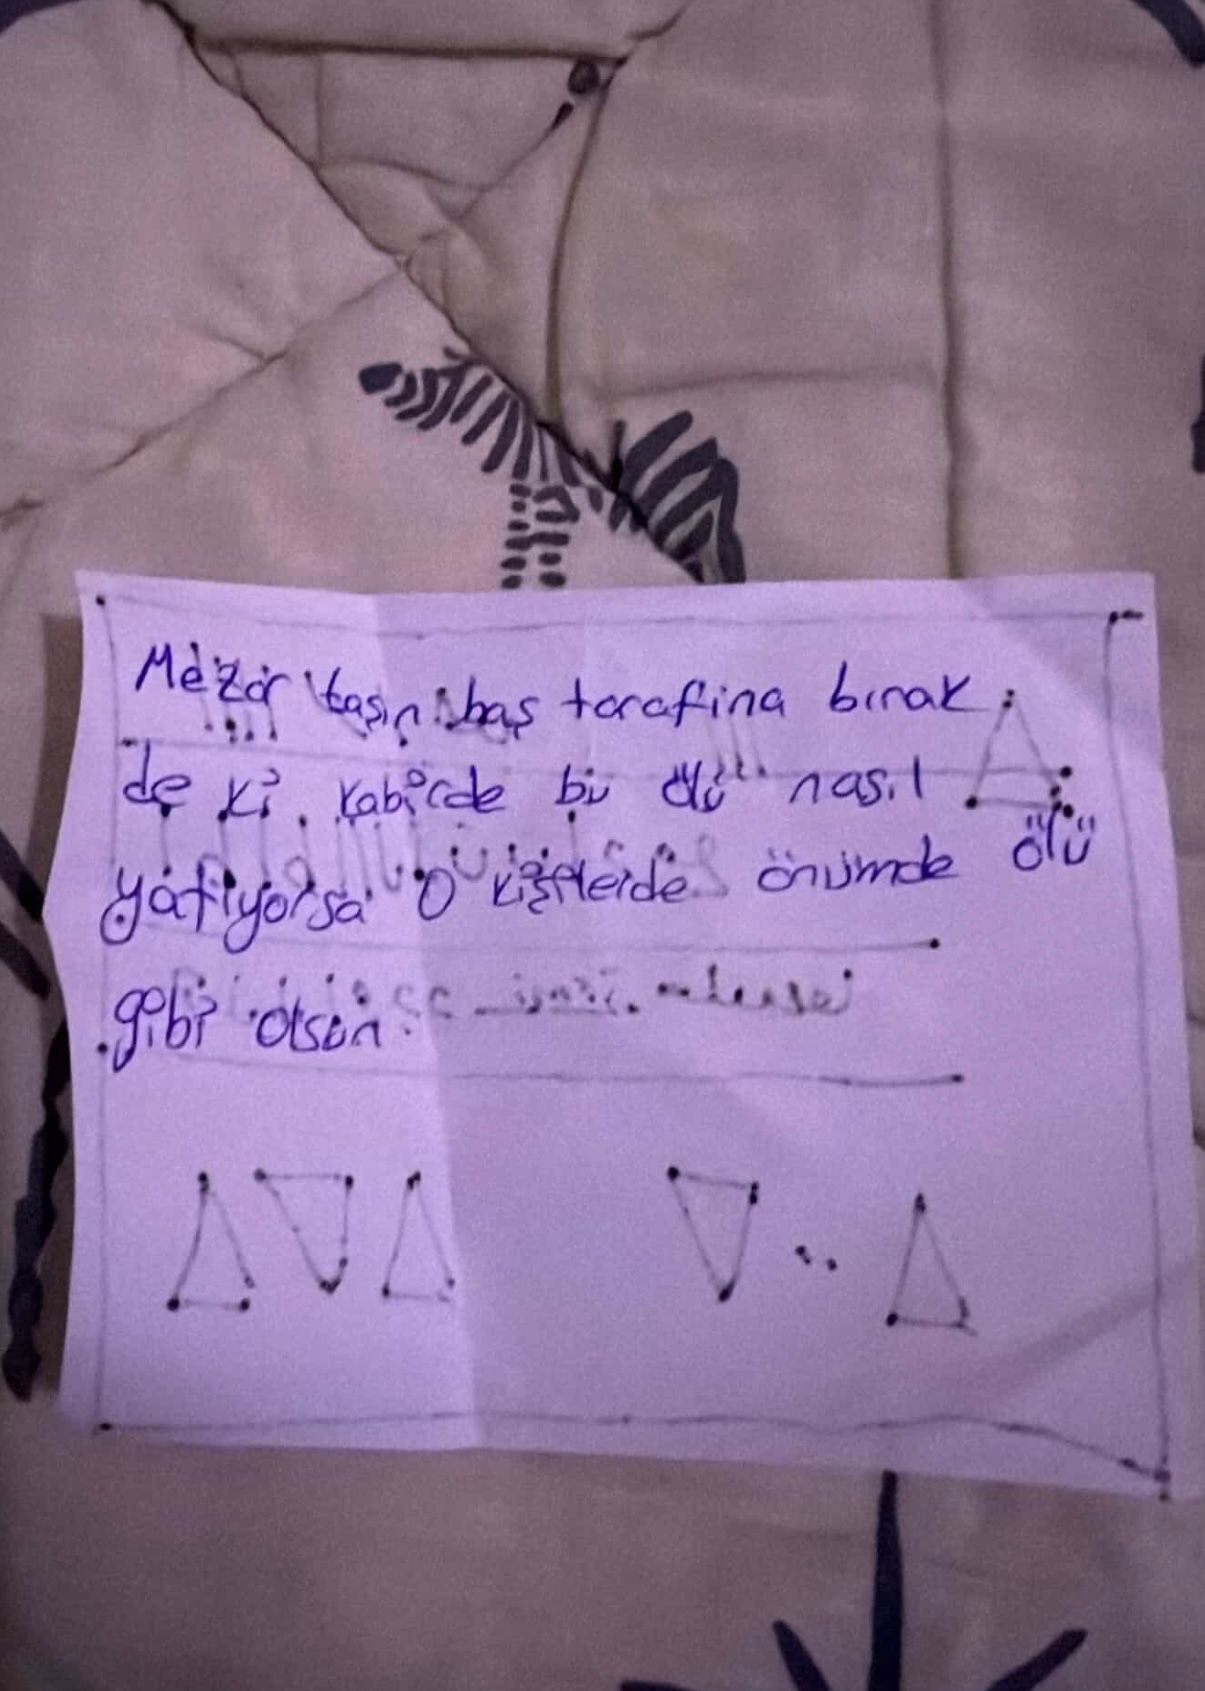 Mezar taşın baş tarafına bırak
de ki kabirde bu ölü nasıl
yatıyorsa O kişilerde önümde ölü
gibi olsun